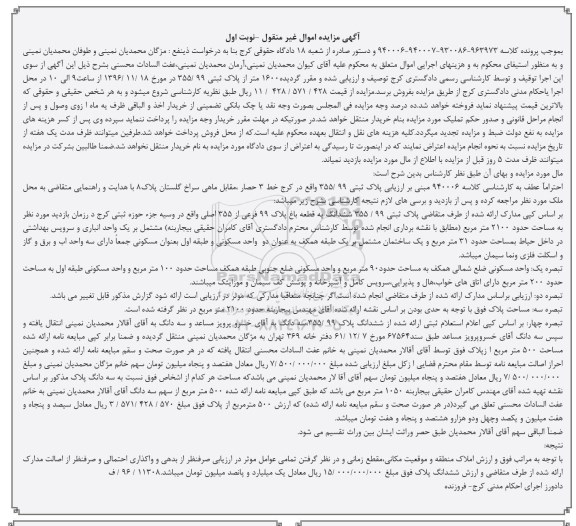 آگهی مزایده اموال غیر منقول -نوبت اول
بموجب پرونده کلاسه ۹۶۳۹۷۳-۹۳۰۰۸۶-۹۴۰۰۰۷-۹۴۰۰۰۶ و دستور صادره از شعبه ۱۸ دادگاه حقوقی کرج بنا به درخواست ذینفع : مژگان محمدیان نمینی و طوفان محمدیان نمینی
و به منظور استیفای محکوم به و هزینهای اجرایی اموال متعلق به محکوم علیه آقای کیوان محمدیان نمینی،آرمان محمدیان نمینی،عفت السادات محسنی بشرح ذیل این آگهی از سوی
این اجرا توقیف و توسط کارشناس رسمی دادگستری کرج توصیف و ارزیابی شده و مقرر گردیده۱۶۰۰ متر از پلاک ثبتی ۹۹ /۳۵۵ در مورخ ۱۸ /۱۱ /۱۳۹۶ از ساعت۹ الی ۱۰ در محل
اجرا یاحکام مدنی دادگستری کرج از طریق مزایده بفروش برسد.مزایده از قیمت ۴۲۸ / ۵۷۱ / ۴۲۸ / ۱۱ ریال طبق نظریه کارشناسی شروع میشود و به هر شخص حقیقی و حقوقی که
بالاترین قیمت پیشنهاد نماید فروخته خواهد شد.ده درصد وجه مزایده فی المجلس بصورت وجه نقد یا چک بانکی تضمینی از خریدار اخذ و الباقی ظرف یه ماه ا زوی وصول و پس از
انجام مراحل قانونی و صدور حکم تملیک مورد مزایده بنام خریدار منتقل خواهد شد.در صورتیکه در مهلت مقرر خریدار وجه مزایده را پرداخت ننماید سپرده وی پس از کسر هزینه های
مزایده به نفع دولت ضبط و مزایده تجدید میگردد.کلیه هزینه های نقل و انتقال بعهده محکوم علیه است.که از محل فروش پرداخت خواهد شد.طرفین میتوانند ظرف مدت یک هفته از
تاریخ مزایده نسبت به نحوه انجام مزایده اعتراض نمایند که در اینصورت تا رسیدگی به اعتراض از سوی دادگاه مورد مزایده به نام خریدار منتقل نخواهد شد.ضمنا طالبین بشرکت در مزایده
میتوانند ظرف مدت ۵ روز قبل از مزایده با اطلاع از مال مورد مزایده بازدید نمیاند.
مال مورد مزایده و بهای آن طبق نظر کارشناس بدین شرح است:
احتراماً عطف به کارشناسی کلاسه ۹۴۰۰۰۶ مبنی بر ارزیابی پلاک ثبتی ۹۹ /۳۵۵ واقع در کرج خط ۳ حصار ،مقابل ماهی سراخ گلستان پلاک۸ با هدایت و راهنمایی متقاضی به محل
ملک مورد نظر مراجعه کرده و پس از بازدید و برسی های لازم نتیجه کارشناسی بشرح زیر میباشد:
بر اساس کپی مدارک ارائه شده از طرف متقاضی پلاک ثبتی ۹۹ / ۳۵۵ ششدانگ یه قطعه باغ پلاک ۹۹ فرعی از ۳۵۵ اصلی واقع در وسیه جزء حوزه ثبتی کرج د رزمان بازدید مورد نظر
به مساحت حدود ۲۱۰۰ متر مربع (مطابق با نقشه برداری انجام شده توسط کارشناس محترم دادگستری آقای کامران حقیقی بیجارینه) مشتمل بر یک واحد انباری و سرویس بهداشتی
در داخل حیاط بمساحت حدود ۳۱ متر مربع و یک ساختمان مشتمل بر یک طبقه همکف به عنوان دو واحد مسکونی و طبقه اول بعنوان مسکونی جمعاً دارای سه واحد اب و برق و گاز
و اسکلت فلزی ونما سیمان میباشد.
تبصره یک: واحد مسکونی ضلع شمالی همکف به مساحت حدود۹۰ متر مربع و واحد مسکونی ضلع جنوبی طبقه همکف مساحت حدود ۱۰۰ متر مربع و واحد مسکونی طبقه اول به مساحت
حدود ۲۰۰ متر مربع دارای اتاق های خواب،هال و پذیرایی،سرویس کامل و آشپزخانه و پوشش کف سیمان و موزاییک میباشند.
تبصره دو: ارزیابی براساس مدارک ارائه شده از طرف متقاضی انجام شده است.اگر چنانچه متعاقبا مدارکی که موثر در ارزیابی است ارائه شود گزارش مذکور قابل تغییر می باشد.
تبصره سه: مساحت پلاک فوق با توجه به حدی بودن بر اساس نقشه ارائه شده آقای مهندس بیجارینه حدود ۲۱۰۰ متر مربع در نظر گرفته شده است.
تبصره چهار: بر اساس کپی اعلام استعلام ثبتی ارائه شده از ششدانگ پلاک ۹۹ /۳۵۵سه دانگ به آقای خسرو پرویز مساعد و سه دانگ به آقای آقالار محمدیان نمینی انتقال یافته و
سپس سه دانگ آقای خسروپرویز مساعد طبق سند۶۷۵۶۴ مورخ ۷ /۱۲ /۶۱ دفتر خانه ۳۶۹ تهران به مژگان محمدیان نمینی منتقل گردیده و ضمنا برابر کپی مبایعه نامه ارائه شده
مساحت ۵۰۰ متر مربع ا زپلاک فوق توسط آقای آقالار محمدیان نمینی به خانم عفت السادات محسنی انتقال یافته که در هر صورت صحت و سقم مبایعه نامه ارائه شده و همچنین
احراز اصالت مبایعه نامه توسط مقام محترم قضایی ا زکل مبلغ ارزیابی شده مبلغ ۰۰۰/ ۰۰۰/ ۵۰۰/ ۷ ریال معادل هفتصد و پنجاه میلیون تومان سهم خانم مژگان محمدیان نمینی و مبلغ
۰۰۰/ ۰۰۰/ ۵۰۰/ ۷ ریال معادل هفتصد و پنجاه میلیون تومان سهم آقای آقا لار محمدیان نمینی می باشدکه مساحت هر کدام از اشخاص فوق نسبت به سه دانگ پلاک مذکور بر اساس
نقشه تهیه شده آقای مهندس کامران حقیقی بیجارینه ۱۰۵۰ متر مربع می باشد که طبق کپی مبایعه نامه ارائه شده ۵۰۰ متر مربع از سهم سه دانگ آقای آقالار محمدیان نمینی به خانم
عفت السادات محسنی تعلق می گیرد(در هر صورت صحت و سقم مبایعه نامه ارائه شده) که ارزش ۵۰۰ مترمربع از پلاک فوق مبلغ ۵۷۰ / ۴۲۸ / ۵۷۱ / ۳ ریال معادل سیصد و پنجاه و
هفت میلیون و یکصد وچهل ودو هزارو هشتصد و پنجاه و هفت تومان میباشد.
ضمناً الباقی سهم آقای آقالار محمدیان طبق حصر وراثت ایشان بین وراث تقسیم می شود.
نتیجه:
با توجه به مراتب فوق و ارزش املاک منطقه و موقعیت مکانی،مقطع زمانی و در نظر گرفتن تمامی عوامل موثر در ارزیابی صرفنظر از بدهی و واگذاری احتمالی و صرفنظر از اصالت مدارک
ارائه شده از طرف متقاضی و ارزش ششدانگ پلاک فوق مبلغ ۰۰۰/ ۰۰۰/ ۰۰۰/ ۱۵ ریال معادل یک میلیارد و پانصد میلیون تومان میباشد.۱۱۳۰۸ / ۹۶ / ف
دادورز اجرای احکام مدنی کرج- فروزنده
ParsNamadData